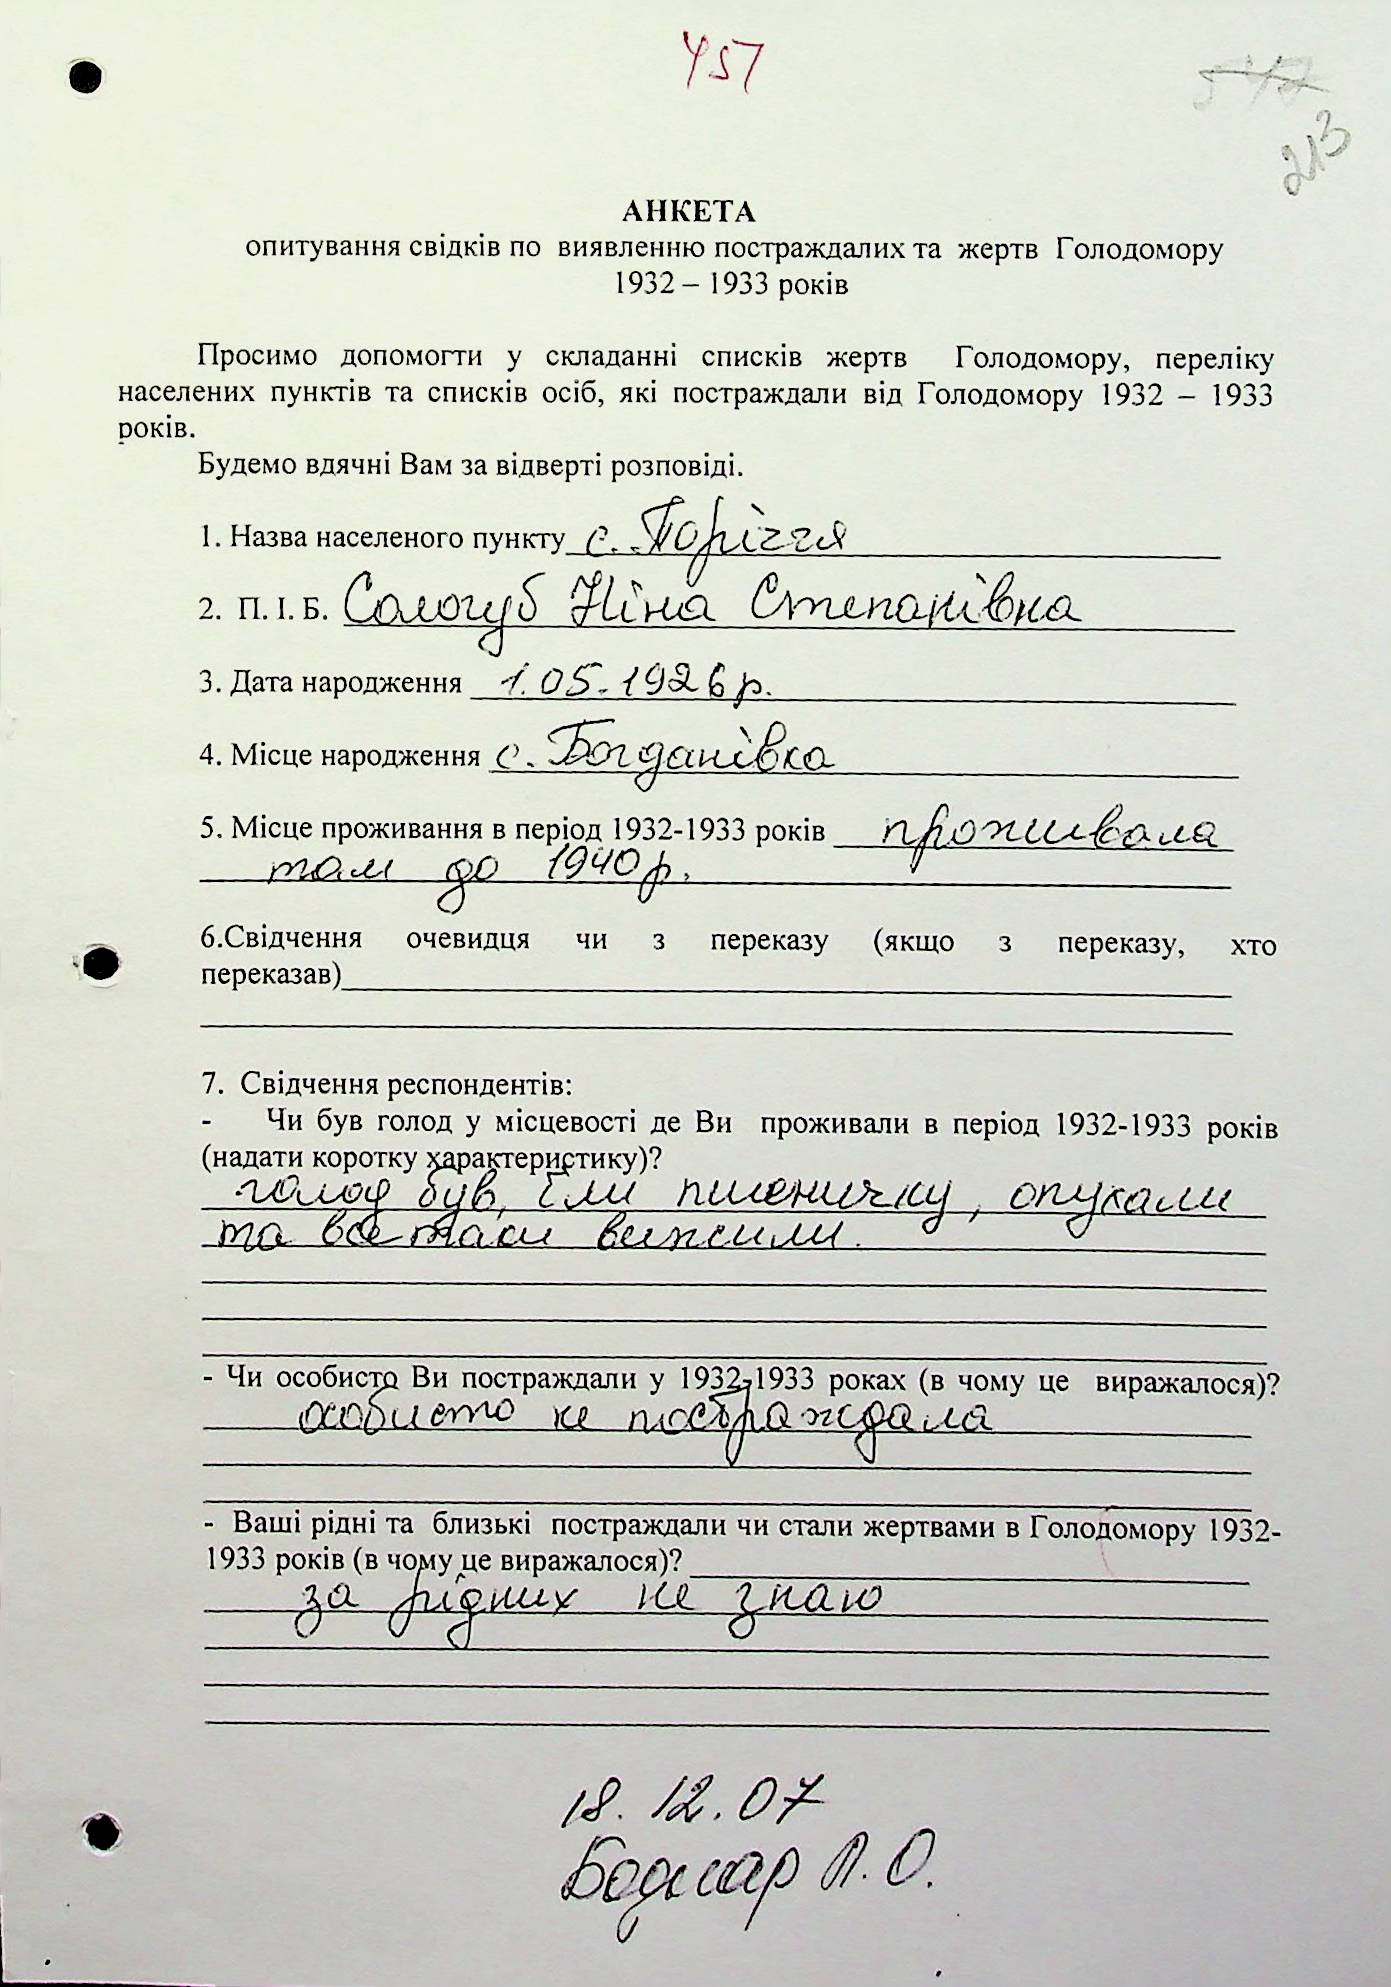 457
547
213
АНКЕТА
опитування свідків по виявленню постраждалих та жертв Голодомору
1932 – 1933 років
Просимо допомогти у складанні списків жертв Голодомору, переліку
населених пунктів та списків осіб, які постраждали від Голодомору 1932 – 1933
років.
Будемо вдячні Вам за відверті розповіді.
1. Назва населеного пункту с. Поріччя
2. П. І. Б. Сологуб Ніна Степанівна
3. Дата народження 1.05.1926 р.
4. Місце народження с. Богданівка
5. Місце проживання в період 1932-1933 років проживала
там до 1940 р.
6.Свідчення очевидця чи з переказу (якщо з переказу, хто
переказав)
7. Свідчення респондентів:
- Чи був голод у місцевості де Ви проживали в період 1932-1933 років
(надати коротку характеристику)?
голод був, їли пшеничку, опухали
та все таки вижили.
- Чи особисто Ви постраждали у 1932-1933 роках (в чому це виражалося)?
особисто не постраждала
- Ваші рідні та близькі постраждали чи стали жертвами в Голодомору 1932-
1933 років (в чому це виражалося)?
за рідних не знаю
18.12.07
Боднар Л. О.